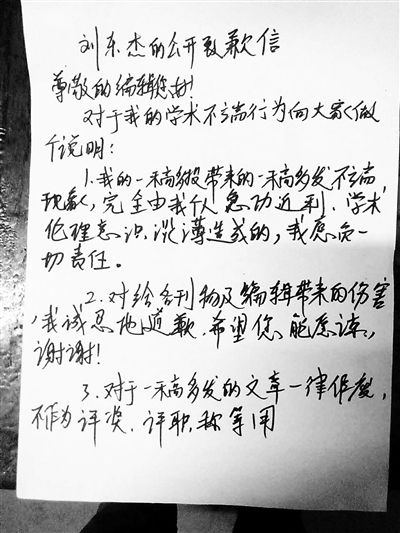 刘东杰的公开致歉信
尊敬的编辑你好!
对于我的学术不端行为向大家做
个说明:
1.我的一稿多投带来的一稿多发不端
现象,完全由我个人急功近利、学术
伦理意识淡薄造成的,我愿负一
切责任。
2.对给各刊物及编辑带来的伤害
,我诚恳地道歉.希望您能原谅,
谢谢!
3.对于一稿多发的文章一律作废,
不作为评奖.评职称等用